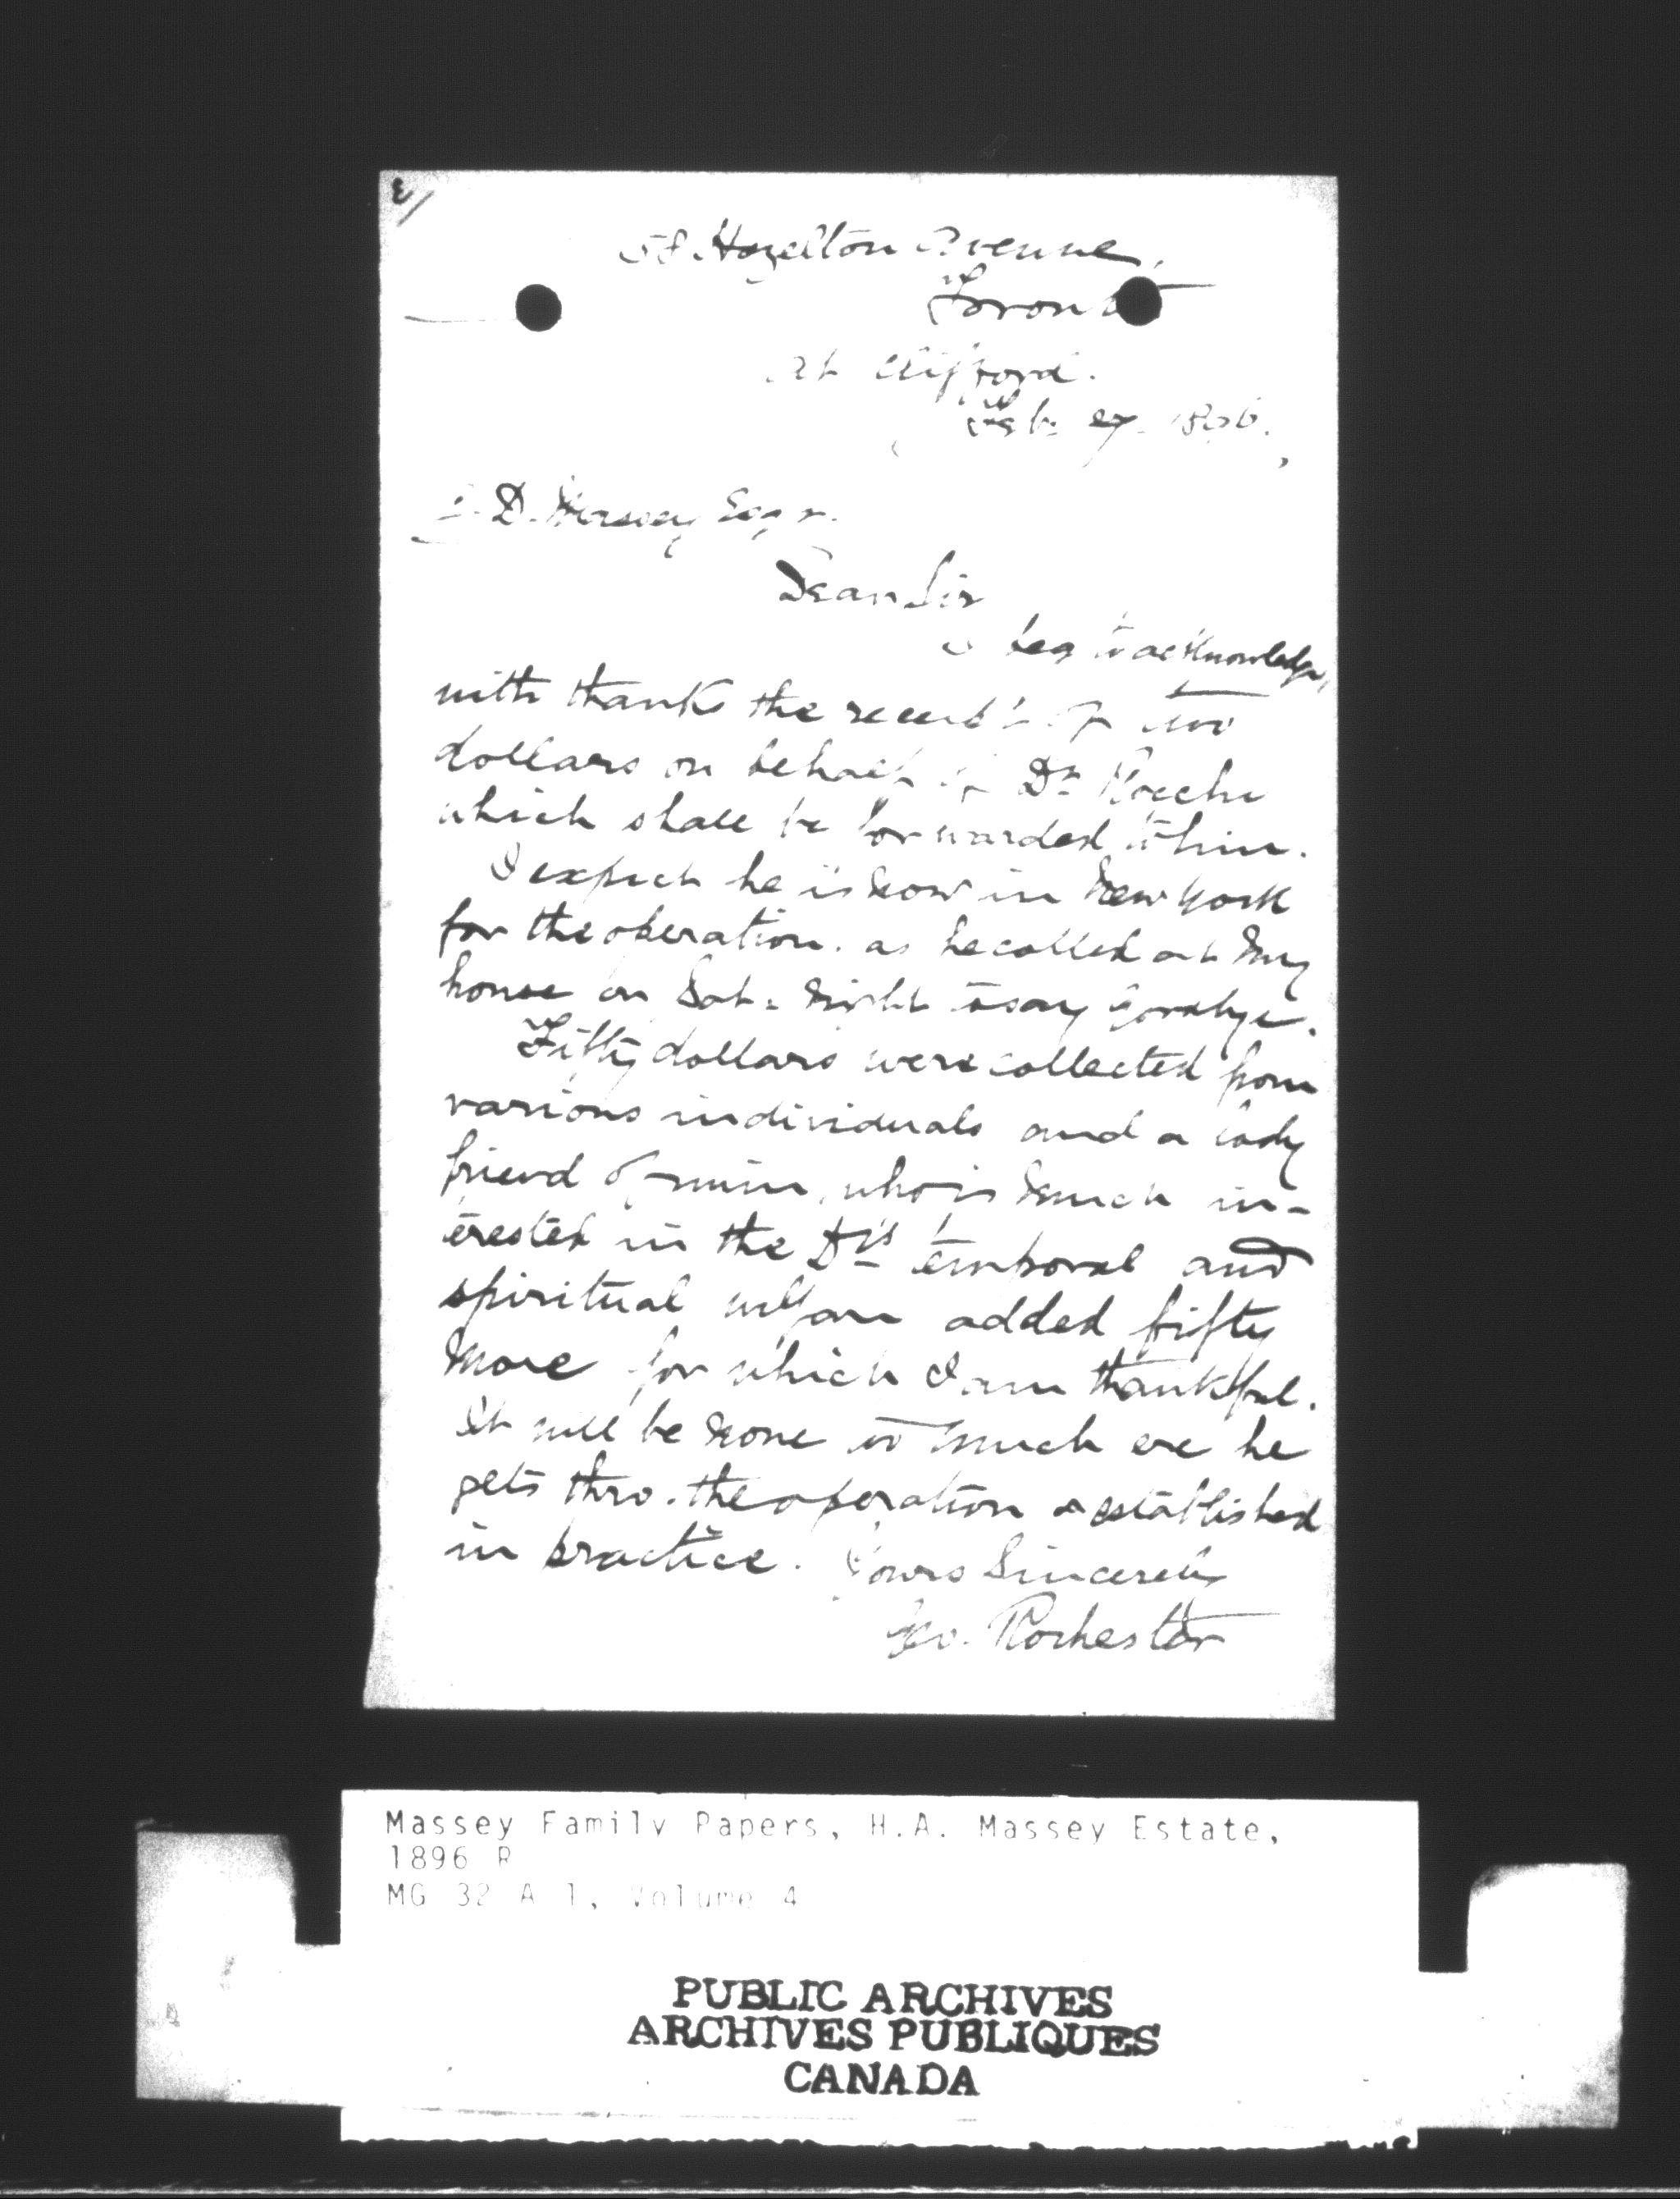 58 Hazelton Avenue,
Toronto
At Clifford.
Feb: 27. 1896.
D. Hersey Esqr.
Dear Sir
I beg to acknowledge,
with thanks the receipt of two
dollars on behalf of Dr
which shall be forwarded to him.
I expect he is now in New York
for the operation. as he called at my
house on Sat: night to say goodbye.
Fifty dollars were collected from
various individuals and a lady
friend of mine, who is much in-
erested in the Drs temporal and
spiritual welfare added fifty
more for which I am thankful.
It will be none too much ere he
gets thro. the operation & established
in practice. Yours Sincerely
Geo. Rochester
Massey Family Papers, H.A. Massey Estate,
1896 R
MG 32 A 1, Volume 4
PUBLIC ARCHIVES
ARCHIVES PUBLIQUES
CANADA